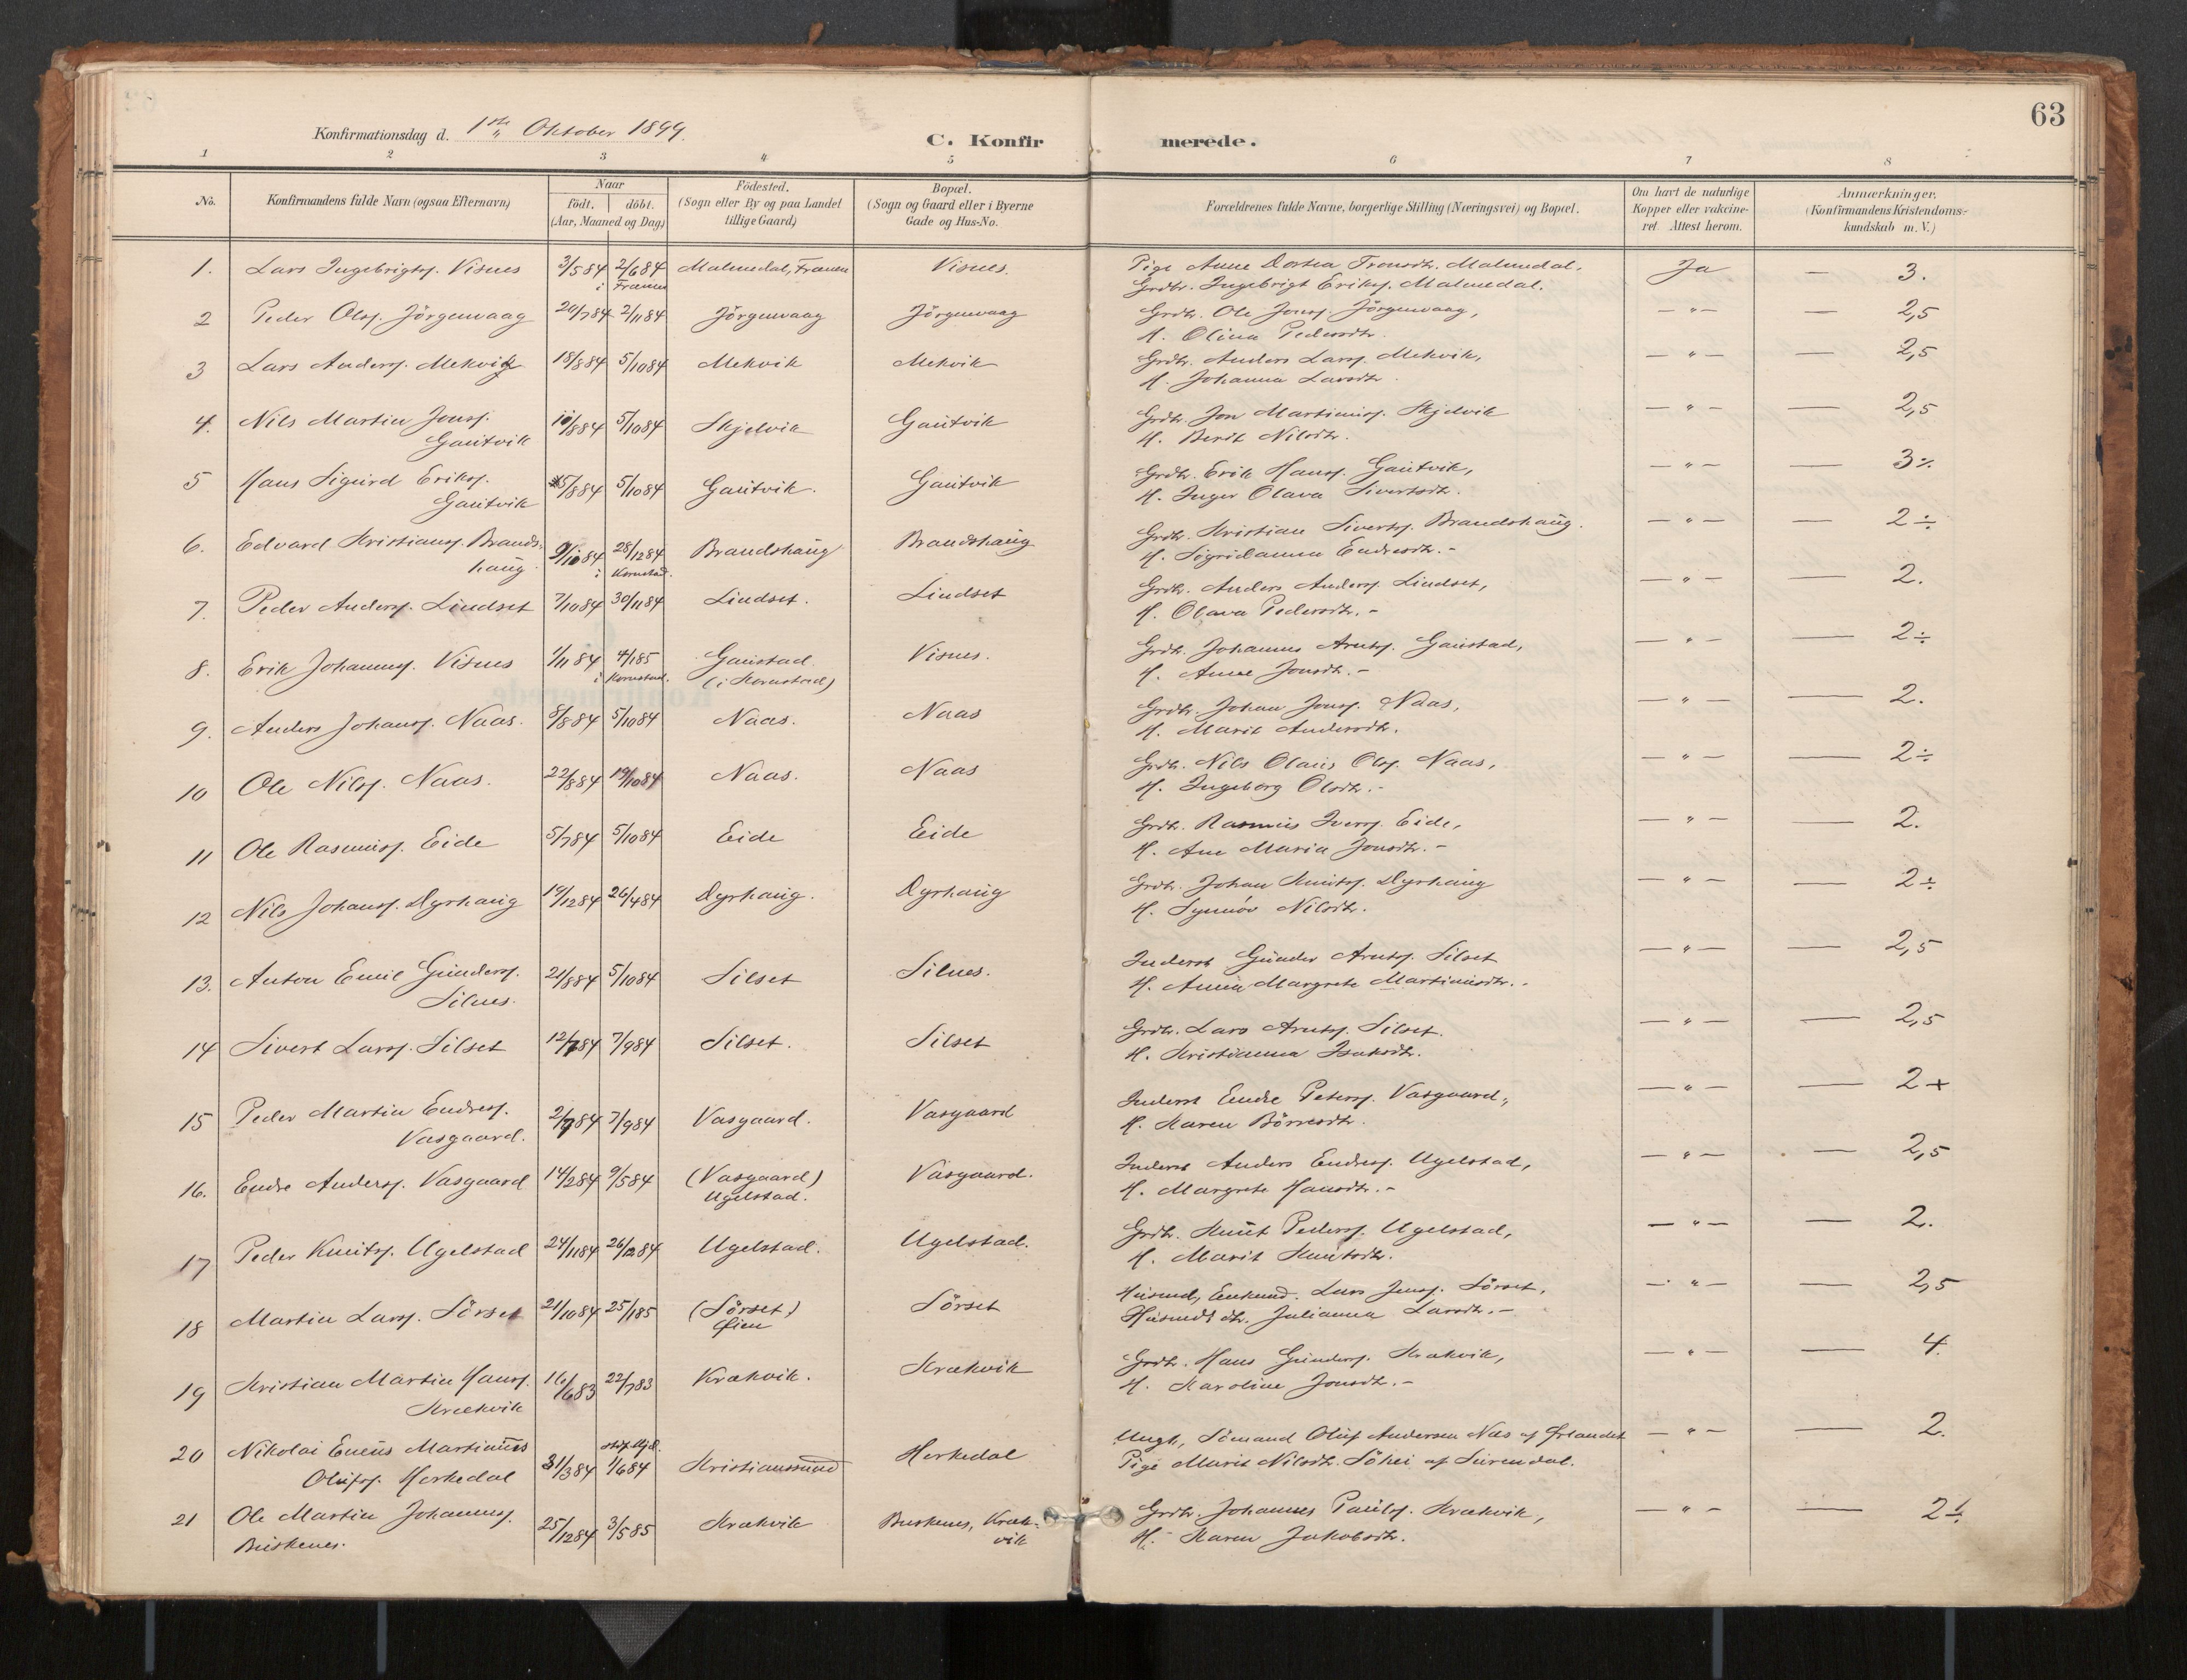 63
Konfirmationsdag d. 1ste Oktober 1899.
C. Konfirmerede.
1 2 3 4 5 6 7 8
No. Konfirmandens fulde Navn (ogsaa Efternavn) Naar födt. döbt. (Aar, Maaned og Dag) Födested. (Sogn eller By og paa Landet tillige Gaard) Bopæl. (Sogn og Gaard eller i Byerne Gade og Hus-No. Forældrenes fulde Navne, borgerlige Stilling (Næringsvei) og Bopæl. Om havt de naturlige Kopper eller vakcineret. Attest herom. Anmærkninger. (Konfirmandens Kristendomskundskab m. V.)
1. Lars Ingebrigts. Visnes 3/5 84 2/6 84 i Frænen Malmedal, Frænen Visnes. Pige Anne Dortea Tronsdtr. Malmedal. Ja — 3.
Grdbr. Ingebrigt Eriks. Malmedal.
2 Peder Ols. Jörgenvaag 20/7 84 2/11 84 Jörgenvaag Jörgenvaag Grdbr. Ole Jons. Jörgenvaag, — " — — 2,5
H. Olina Pedersdtr.
3 Lars Anders. Mekvik 18/8 84 5/10 84 Mekvik Mekvik Grdbr. Anders Lars. Mekvik, — " — — 2,5
H. Johanna Larsdtr.
4. Nils Martin Jons. Gautvik 10/8 84 5/10 84 Skjelvik Gautvik Grdbr. Jon Martinus. Skjelvik — " — — 2,5
H. Berit Nilsdtr.
5 Hans Sigurd Eriks. Gautvik 5/8 84 5/10 84 Gautvik. Gautvik Grdbr. Erik Hans. Gautvik, — " — — 3 ÷
H. Inger Olava Sivertsdtr.
6. Edvard Kristians. Brandshaug 9/10 84 28/12 84 i Kornstad. Brandshaug Brandshaug Grdbr. Kristian Siverts. Brandshaug. — " — — 2 ÷
H. Sigridanna Endresdtr. -
7. Peder Anders. Lindset 7/10 84 30/11 84 Lindset. Lindset Grdbr. Anders Anders. Lindset, — " — — 2.
H. Olava Pedersdtr. -
8. Erik Johannes. Visnes 1/11 84 4/1 85 i Kornstad. Gaustad (i Kornstad) Visnes. Grdbr. Johannes Arnts. Gaustad, — " — — 2 ÷
H. Anne Jonsdtr. -
9. Anders Johans. Naas. 8/8 84 5/10 84 Naas. Naas Grdbr. Johan Jons. Naas, — " — — 2.
H. Marit Andersdtr.
10 Ole Nils. Naas. 22/8 84 19/10 84 Naas. Naas Grdbr. Nils Olaus Ols. Naas, — " — — 2 ÷
H. Ingeborg Olsdtr. -
11 Ole Rasmus. Eide 5/7 84 5/10 84 Eide Eide Grdbr. Rasmus Ivers. Eide, — " — — 2.
H. Ane Maria Jonsdtr. -
12 Nils Johans. Dyrhaug 19/12 84 26/4 84 Dyrhaug. Dyrhaug Grdbr. Johan Knuts. Dyrhaug — " — — 2 ÷
H. Synnöv Nilsdtr.
13. Anton Emil Gunders. Silnes. 21/8 84 5/10 84 Silset Silnes. Inderst Gunder Arnts. Silset — " — — 2,5
H. Anna Margrete Martinusdtr. -
14 Sivert Lars. Silset 12/7 84 7/9 84 Silset. Silset Grdbr. Lars Arnts. Silset. — " — — 2,5
H. Kristianna Isaksdtr.
15 Peder Martin Endres. Vasgaard. 2/7 84 7/9 84 Vasgaard. Vasgaard Inderst Endre Peters. Vasgaard, — " — — 2 +
H. Karen Börresdtr.
16. Endre Anders. Vasgaard 14/2 84 9/5 84 (Vasgaard) Ugelstad. Vasgaard. Inderst Anders Endres. Ugelstad, — " — — 2,5
H. Margrete Hansdtr. -
17 Peder Knuts. Ugelstad 24/11 84 26/12 84 Ugelstad. Ugelstad. Grdbr. Knut Peders. Ugelstad, — " — — 2.
H. Marit Knutsdtr.
18 Martin Lars. Sörset 21/10 84 25/1 85 (Sörset) Øien Sörset Husmd, Enkemd. Lars Jens. Sörset, — " — — 2,5
Husmdsdtr. Julianna Larsdtr. -
19 Kristian Martin Hans. Krækvik 16/6 83 22/7 83 Krækvik. Krækvik Grdbr. Hans Gunders. Krækvik, — " — — 4.
H. Karoline Jonsdtr. -
20 Nikolai Eneus Martinus Olufs. Herkedal 31/3 84 1/6 84 Kristianssund Herkedal Ungk, Sömand Oluf Andersen Næs af Ørlandet — " — — 2.
Pige Marit Nilsdtr. Söhei af Surendal.
21 Ole Martin Johannes. Buskenes. 25/12 84 3/5 85 Krækvik Buskenes, Krækvik Grdbr. Johannes Pauls. Krækvik, — " — — 2 ÷
H. Karen Jakobsdtr.